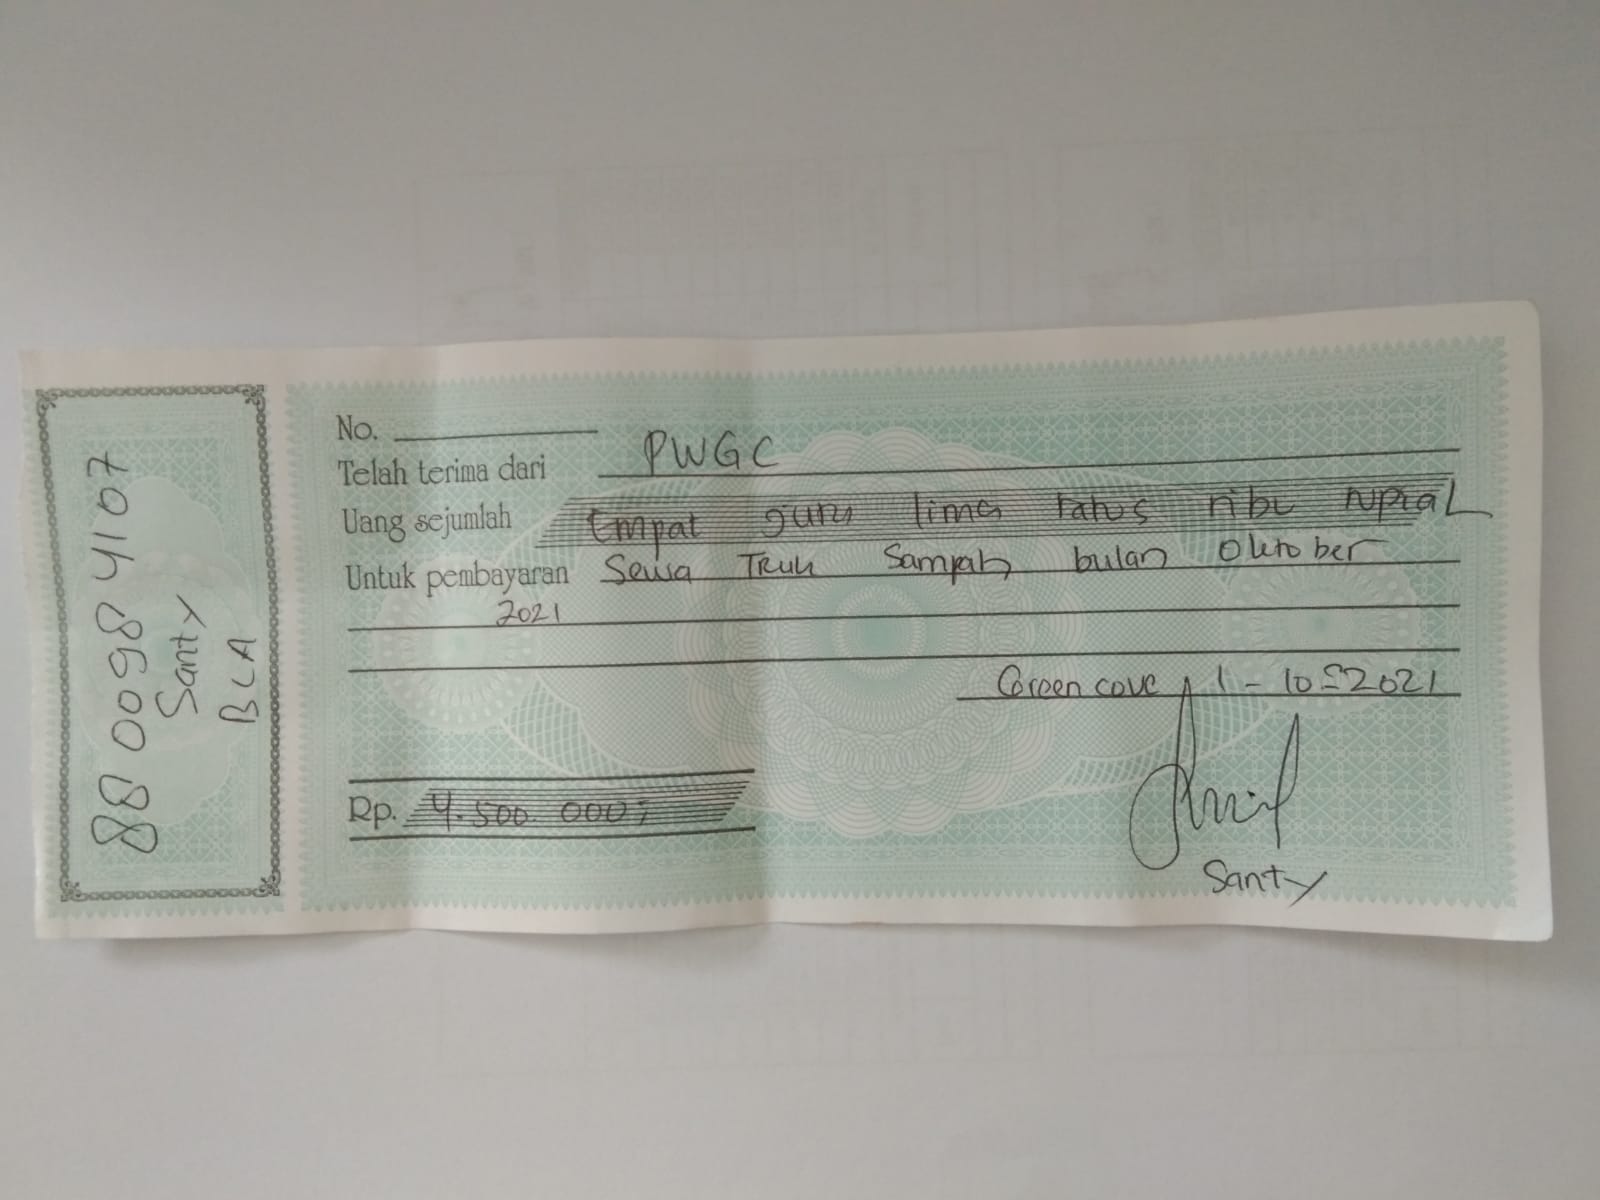 8800984107
Santy
BCA
No.
Telah terima dari PWGC
Uang sejumlah Empat juta lima ratus ribu rupiah
Untuk pembayaran Sewa Truk Sampah bulan Oktober
2021
Green cove, 1 - 10 - 2021
Rp. 4.500.000,-
Santy